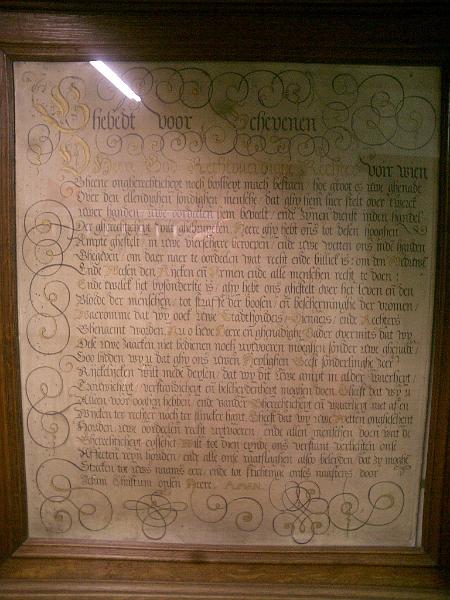 Ghebedt voor Schepenen
O Heere God Rechtveerdighe Rechter Voor wien
Gheene ongherechticheyt noch boosheyt mach bestaen hoe groot is uwe ghenade
Over den ellendighen sondighen mensche dat ghy hem hier stelt over
uwer handen, uwe oordeelen hem beveelt ende Zynen dienst inden handel
Der gherechticheyt Heere ghy hebt ons tot desen hooghen
Ampte ghestelt, in uwe Vierschare beroepen, ende uwe Wetten ons inde handen
Ghegheven, om daer naer te oordeelen wat recht ende billick is: om den
Ende Weesen den Rycken en Armen ende alle menschen recht te doen:
Ende twelck het bysonderste is, ghy hebt ons ghestelt over het leven en den
Bloede der menschen, tot straffe der boosen, en bescherminghe der vromen,
Waeromme dat wy oock uwe Stadthouders, Dienaers, ende Rechters
Ghenaemt worden. Nu o lieve Heere en ghenadighe Vader overmits dat wy
Dese uwe Zaecken niet bedienen noch uytvoeren moghen sonder uwe ghenade,
Soo bidden wy u dat ghy ons uwen Heylighen Gheest sonderlinghe zeer
Ryckelycken wilt mede deylen, dat wy dit uwe ampt in alder waerheyt,
verstandicheyt en bescheydentheyt moghen doen. Gheeft dat wy u
Alleen voor ooghen hebben, ende vander Gherechticheyt en waerheyt niet af en
Wycken ter rechter noch ter slincker hant. Gheeft dat wy uwe Wetten ongheschent
Houden, uwe oordeelen recht uytvoeren, ende allen menschen doen wat de
Gherechticheyt eysschet. Wilt tot dien eynde ons verstant verlichten onse
reyn houden, ende alle onse raetslaghen alsoo beleyden, dat zy moghen
Strecken tot uwes naems eere, ende tot stichtinge onses naesten, door
Jesum Christum onsen Heere, Amen.